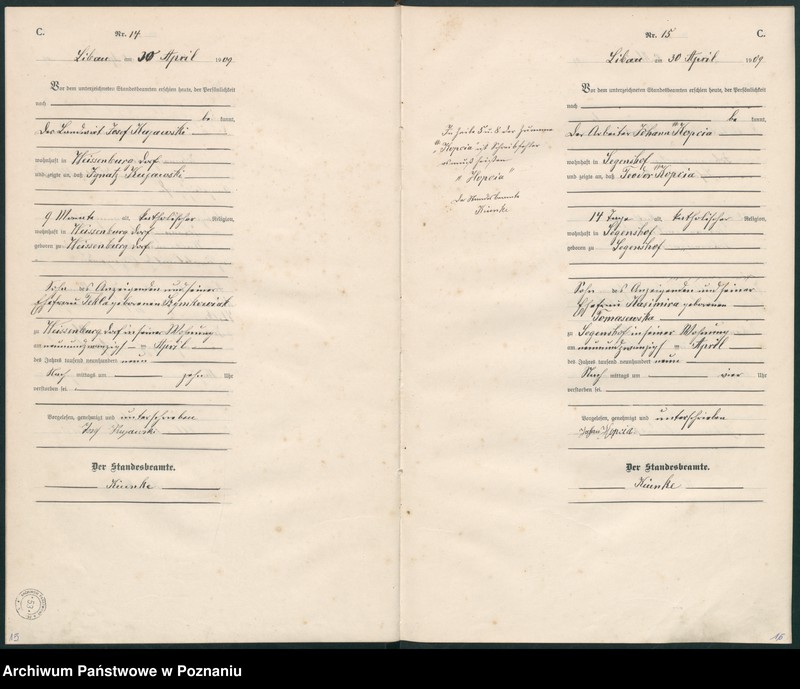 C.
Nr. 14
Libau am 30 April 1909
Vor dem unterzeichneten Standesbeamten erschien heute, der Persönlichkeit
nach
be kannt,
Der Landwirt Josef Kujawski
wohnhaft in Weissenburg Dorf
und zeigte an, daß Ignatz Kujawski
9 Monate alt, katholischer Religion,
wohnhaft in Weissenburg Dorf
geboren zu Weissenburg Dorf
Sohn des Anzeigenden und seiner
Ehefrau Tekla geborenen Szymkowiak
zu Weissenburg Dorf in seiner Wohnung
am neunundzwanzigsten April
des Jahres tausend neunhundert neun
Nach mittags um zehn Uhr
verstorben sei.
Vorgelesen, genehmigt und unterschrieben
Josef Kujawski
Der Standesbeamte.
19
In Zeile 5 u. 8 der Zuname
"Kopcia" ist Schreibfehler
es muß heißen
"Hopcia"
Der Standesbeamte
Nr. 15
C.
Libau am 30 April 1909
Vor dem unterzeichneten Standesbeamten erschien heute, der Persönlichkeit
nach
be kannt,
Der Arbeiter Johann Kopcia
wohnhaft in Segenshof
und zeigte an, daß Teodor Kopcia
14 Tage alt, katholischer Religion,
wohnhaft in Segenshof
geboren zu Segenshof
Sohn des Anzeigenden und seiner
Ehefrau Kasimira geborenen
Tomaszewska
zu Segenshof in seiner Wohnung
am neunundzwanzigsten April
des Jahres tausend neunhundert neun
Nach mittags um vier Uhr
verstorben sei.
Vorgelesen, genehmigt und unterschrieben
Hopcia
Der Standesbeamte.
16
Archiwum Państwowe w Poznaniu